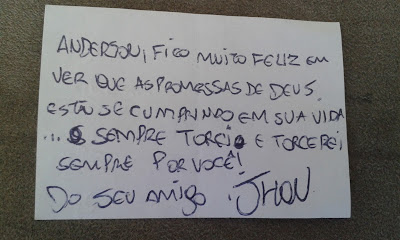 ANDERSON, FICO MUITO FELIZ EM
VER QUE AS PROMESSAS DE DEUS
ESTÃO SE CUMPRINDO EM SUA VIDA
... SEMPRE TORCI E TORCEREI
SEMPRE POR VOCÊ!
DO SEU AMIGO JHON